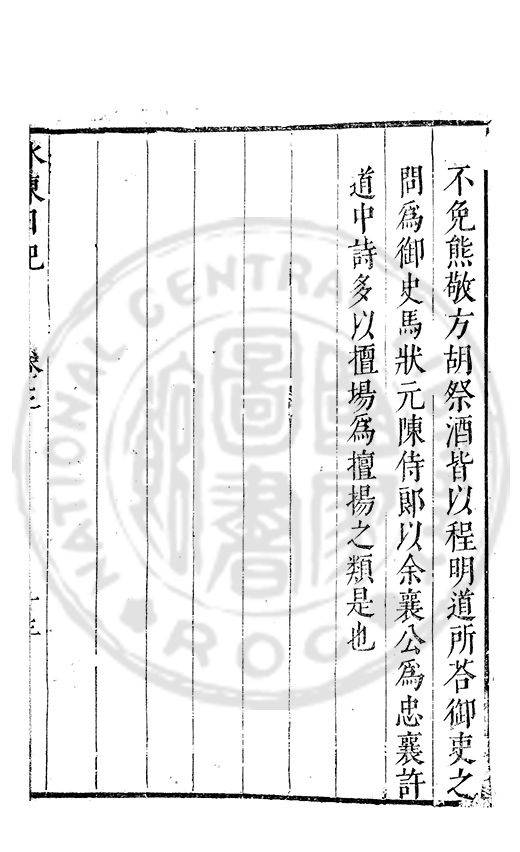 不免熊敬方胡祭酒皆以程明道所荅御吏之
問為御史馬狀元陳侍郎以余襄公為忠襄許
道中詩多以擅場為擅揚之類是也
水東日記 卷三
NATIONAL CENTRAL
圖書